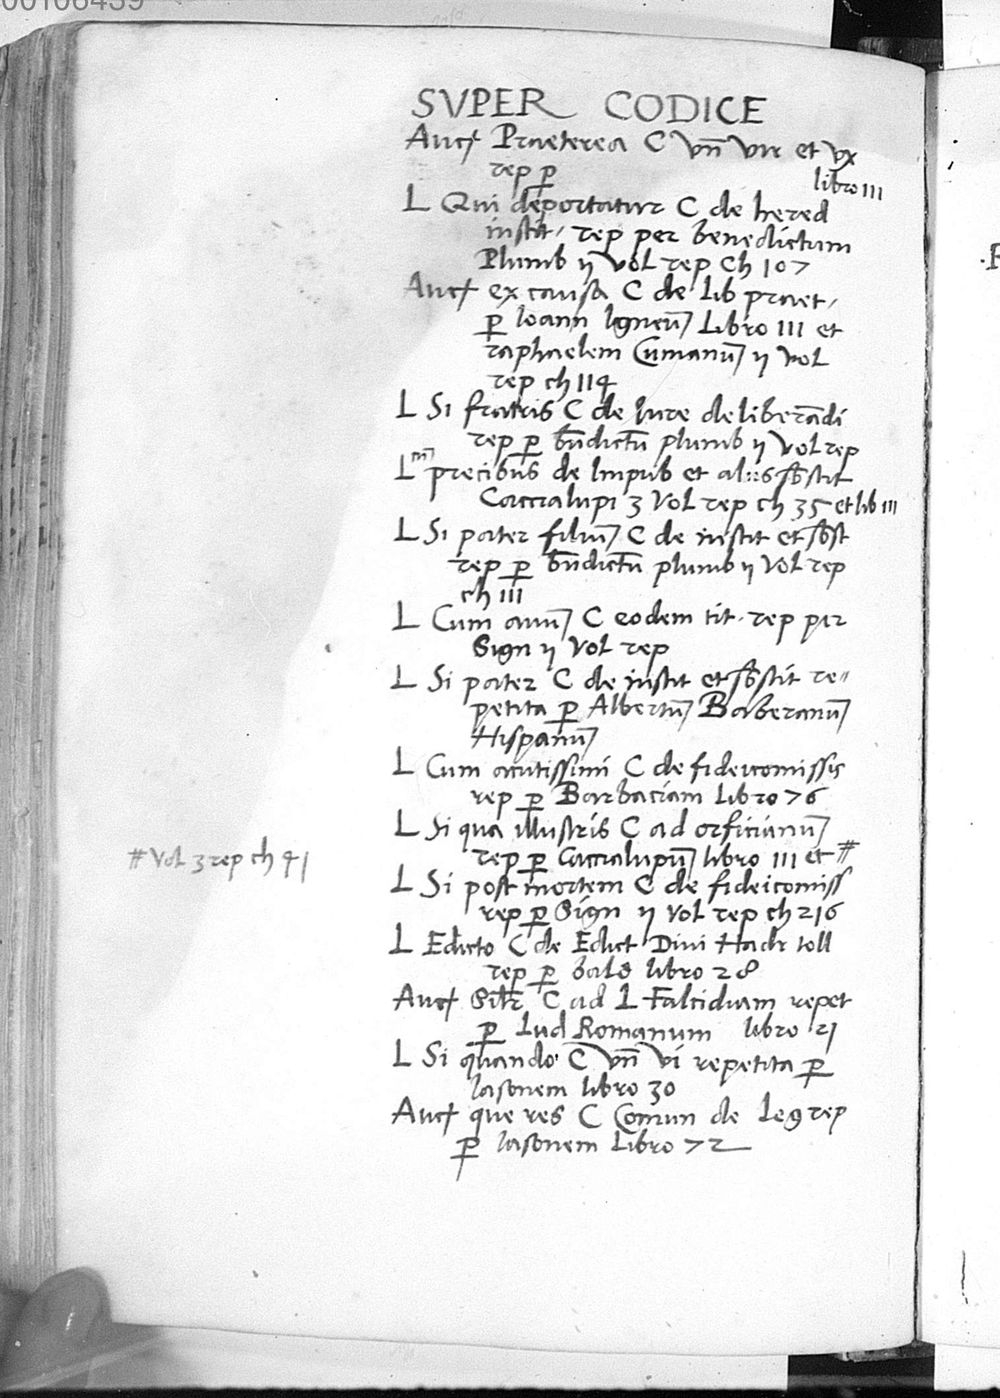 00106439
SVPER CODICE
Auct Praeterea C Vn̄ Vir et Vx
rep p̱ libro III
L Qui deportatur C de hered
instit, rep per benedictum
Plumb ij Vol rep Ch 107
Auct ex causa C de Lib praet,
p̱ Ioann Igneū Libro III et
raphaelem Cumanū ij Vol
rep ch 114
L Si fratris C de Iure deliberādi
rep p̱ bn̄dictū plumb ij Vol rep
L precibus de Impub et aliis sbstit
Caccialupi 3 Vol rep ch 35 et lib III
L Si pater filiū C de instit et sbst
rep p̱ bn̄dictū plumb ij Vol rep
ch III
L Cum auū C eodem tit. rep per
Sign ij Vol rep
L Si pater C de instit et sbstit re=
petita p̱ Albertū Barberanū
Hispanū
L Cum acutissimi C de fideicomissis
rep p̱ Barbaciam Libro 76
L Si qua illustris C ad orficianū
rep p̱ Caccialupū libro III et #
# Vol 3 rep ch 41
L Si post mortem C de fideicomiss
rep p̱ Sign ij Vol rep ch 216
L Edicto C de Edict Divi Hadr toll
rep p̱ bald libro 28
Auct Silr C ad L Falcidiam repet
p̱ Lud Romanum libro 21
L Si quando C Vn̄ Vi repetita p̱
Iasonem libro 30
Auct que res C Comun de Leg rep
p̱ Iasonem Libro 72